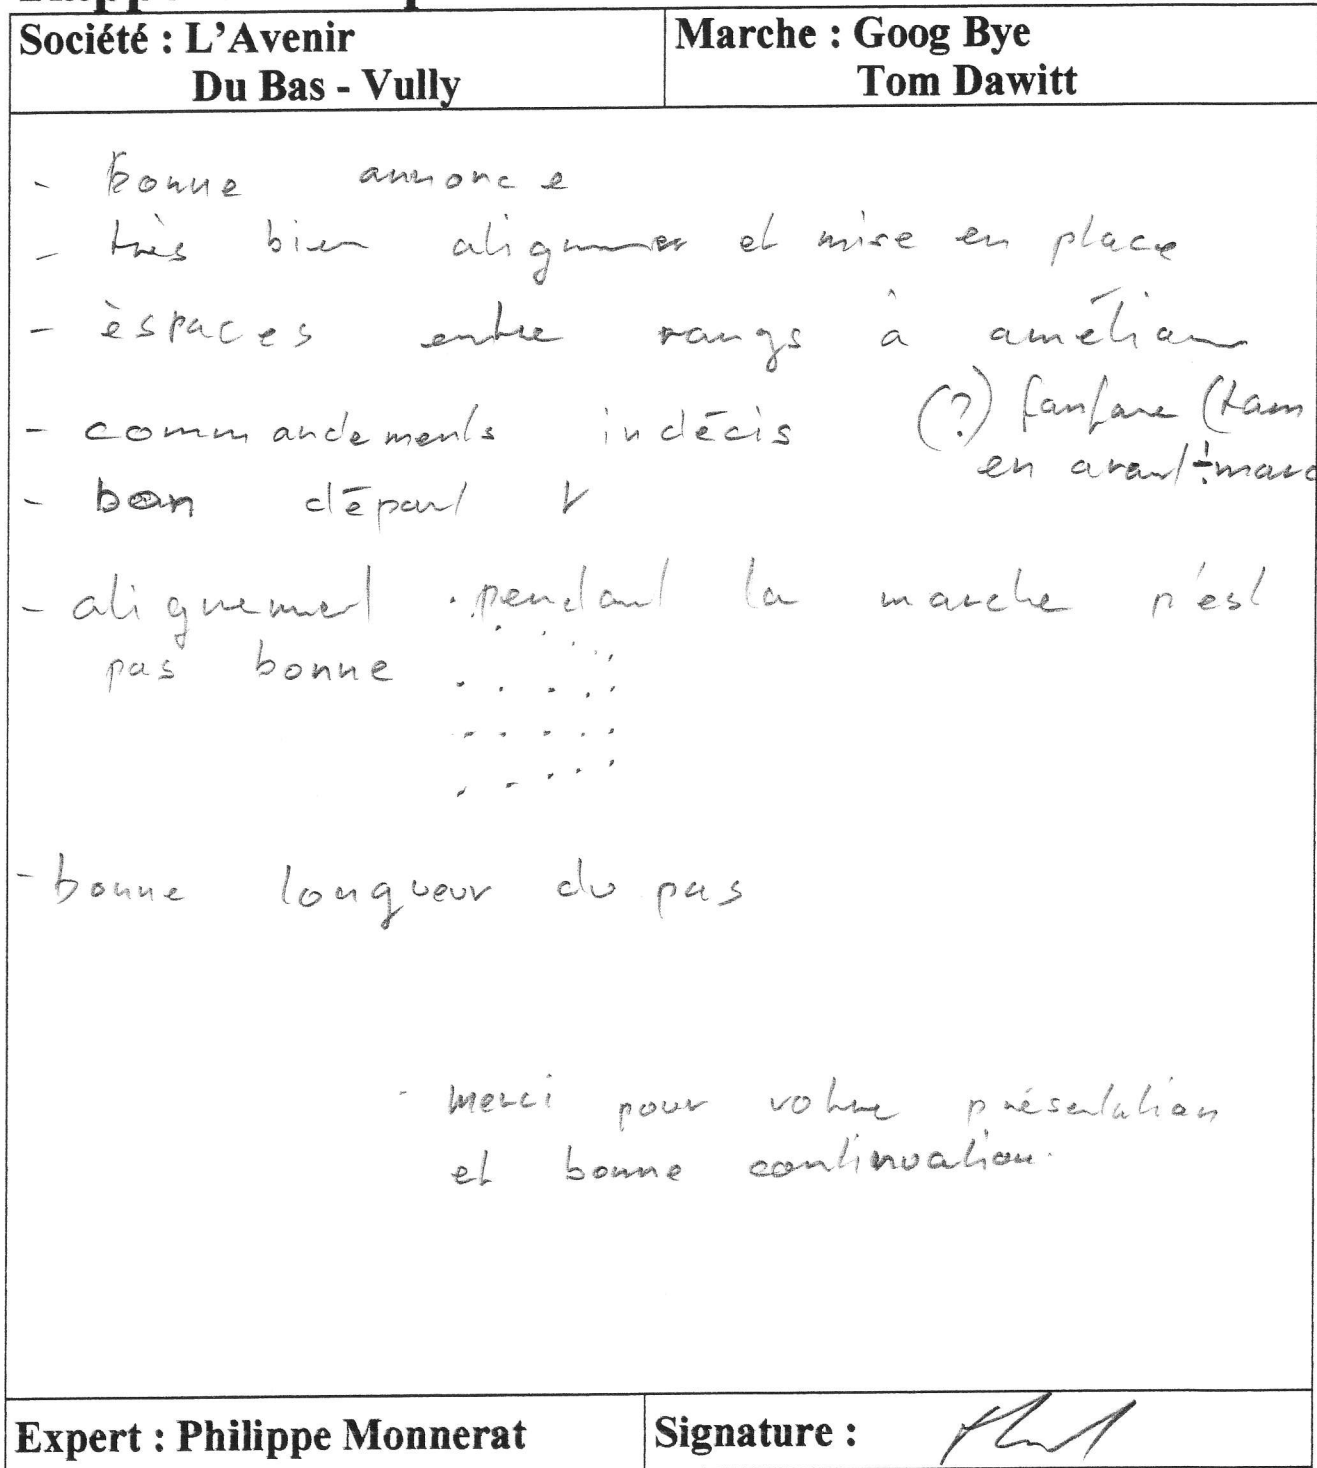 Société : L'Avenir
Du Bas - Vully
Marche : Goog Bye
Tom Dawitt
- bonne annonce
- très bien aligner et mise en place
- èspaces entre rangs à améliorer
- commandements indécis (?) fanfare (tam
en avant marc
- bon départ
- alignement pendant la marche n'est
pas bonne
- bonne longueur du pas
- merci pour votre présentation
et bonne continuation.
Expert : Philippe Monnerat
Signature :